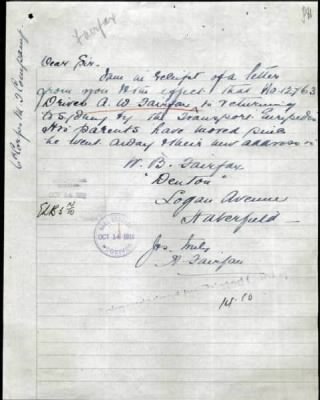 Fairfax
Dear Sir.
I am in receipt of a letter
from you to the effect that No 12763
Driver A. W. Fairfax is returning
to Sydney by the Transport Euripides
His parents have moved since
he went away & their new address is
W. B. Fairfax
"Denton"
Logan Avenue
Haberfield
Yrs truly
A Fairfax
OCT 14 1918